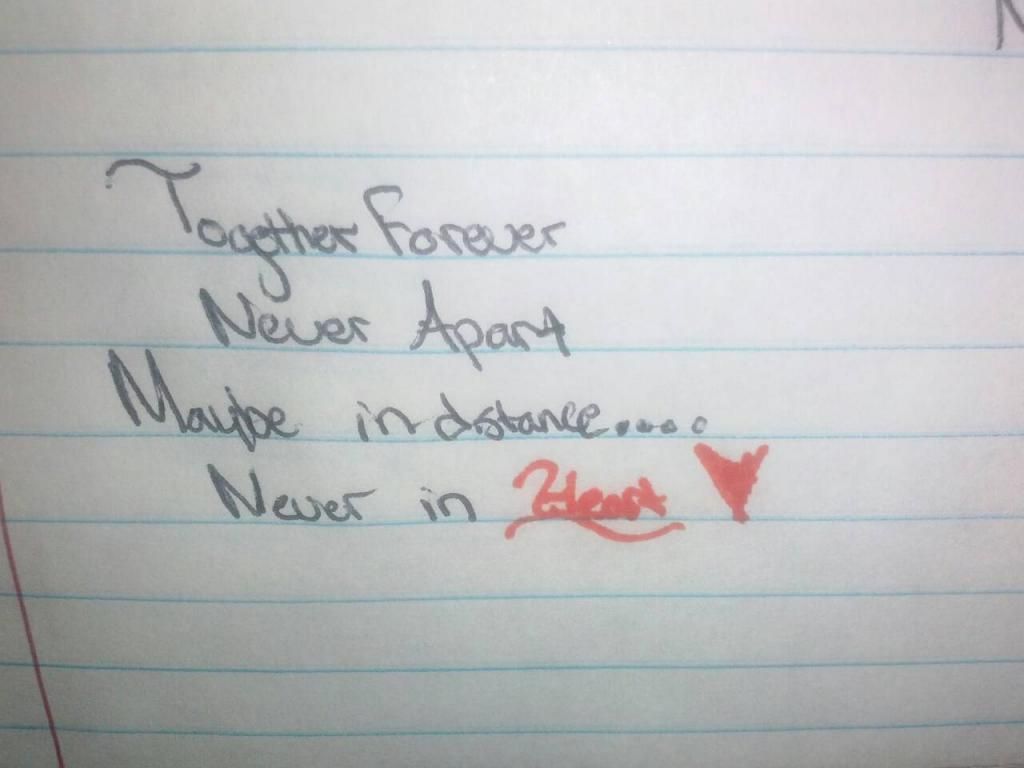 N
Together Forever
Never Apart
Maybe in distance....
Never in Heart